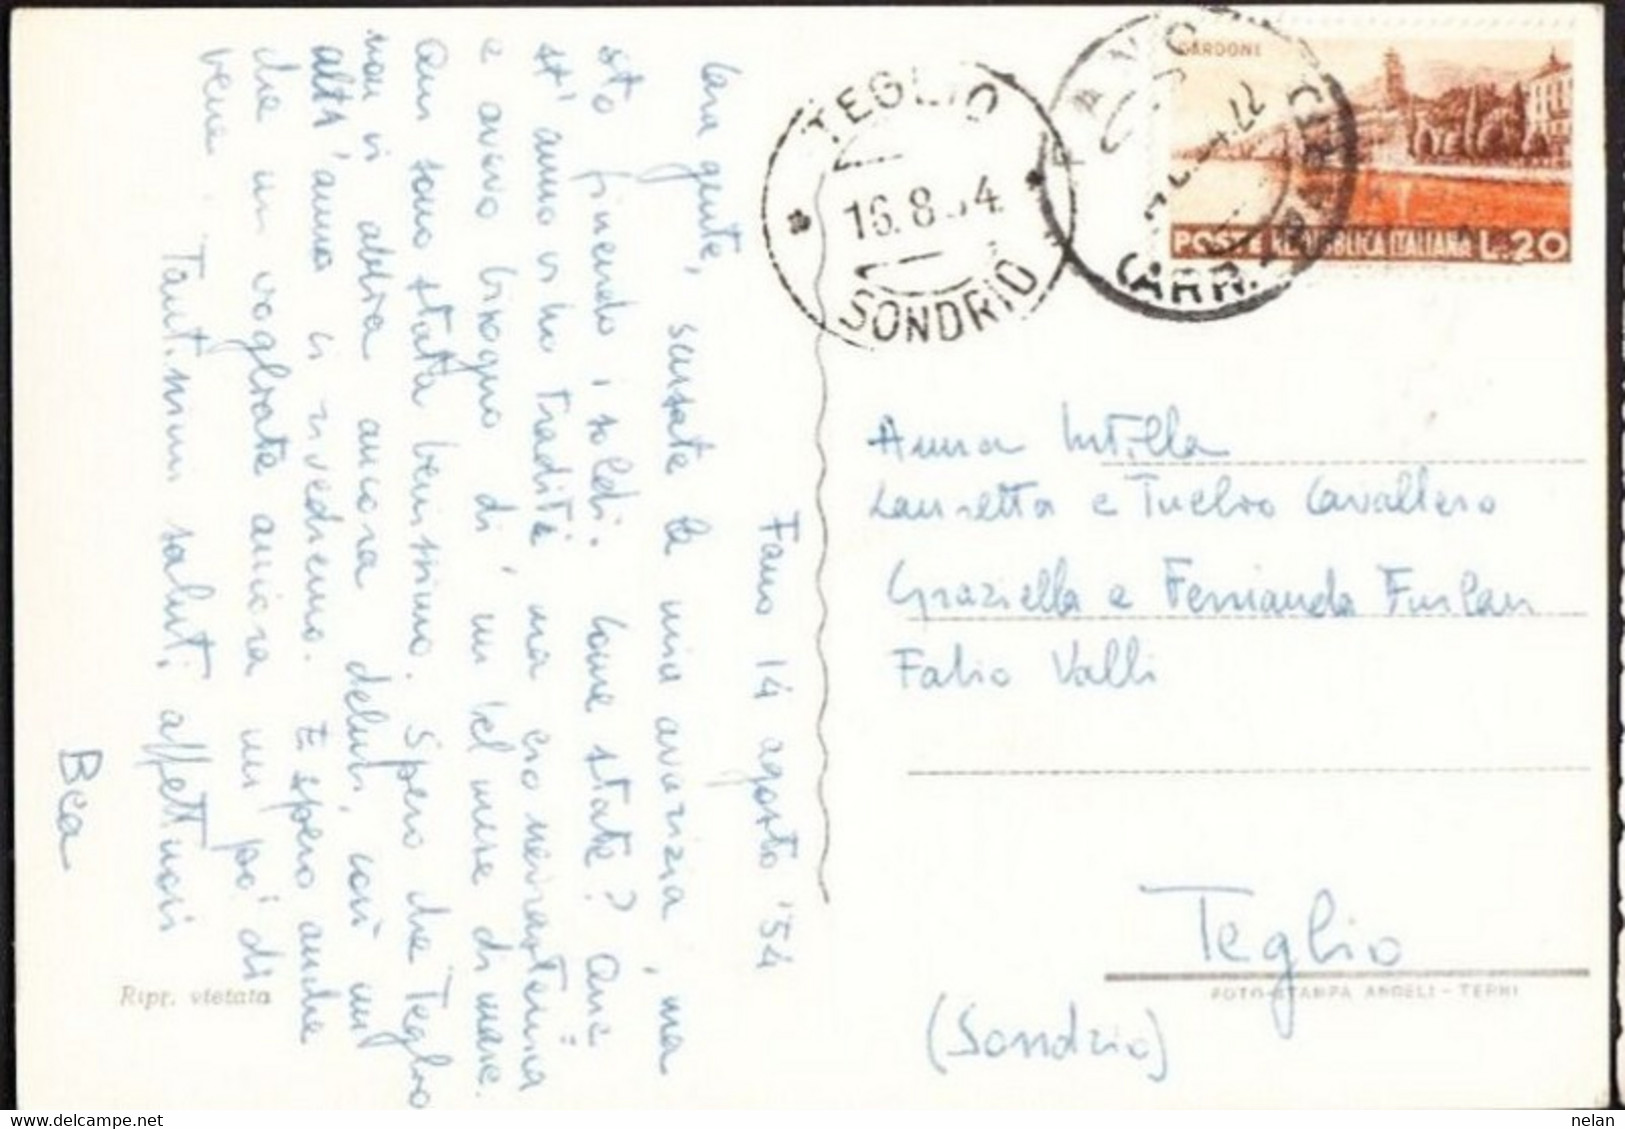 Fano 14 agosto '54
Cara gente, scusate la mia avarizia, ma
sto finendo i soldi. Come state? Que
st'anno vi ho tradite, ma ero nevrastenica
e avevo bisogno di un bel mese di mare.
Qui sono stata benissimo. Spero che Teglio
non vi abbia ancora delusi, così un
altr'anno ci rivedremo. E spero anche
che mi vogliate ancora un po' di
bene. Tantissimi saluti affettuosi
Bea
Ripr. vietata
TEGLIO
16.8.54
SONDRIO
FANO
CARR.
GARDONE
POSTE REPUBBLICA ITALIANA L.20
Anna
Lauretta e Cavallero
Graziella e Fernanda Furlan
Fabio Valli
Teglio
(Sondrio)
FOTO-STAMPA ANGELI - TERNI
delcampe.net
nelan